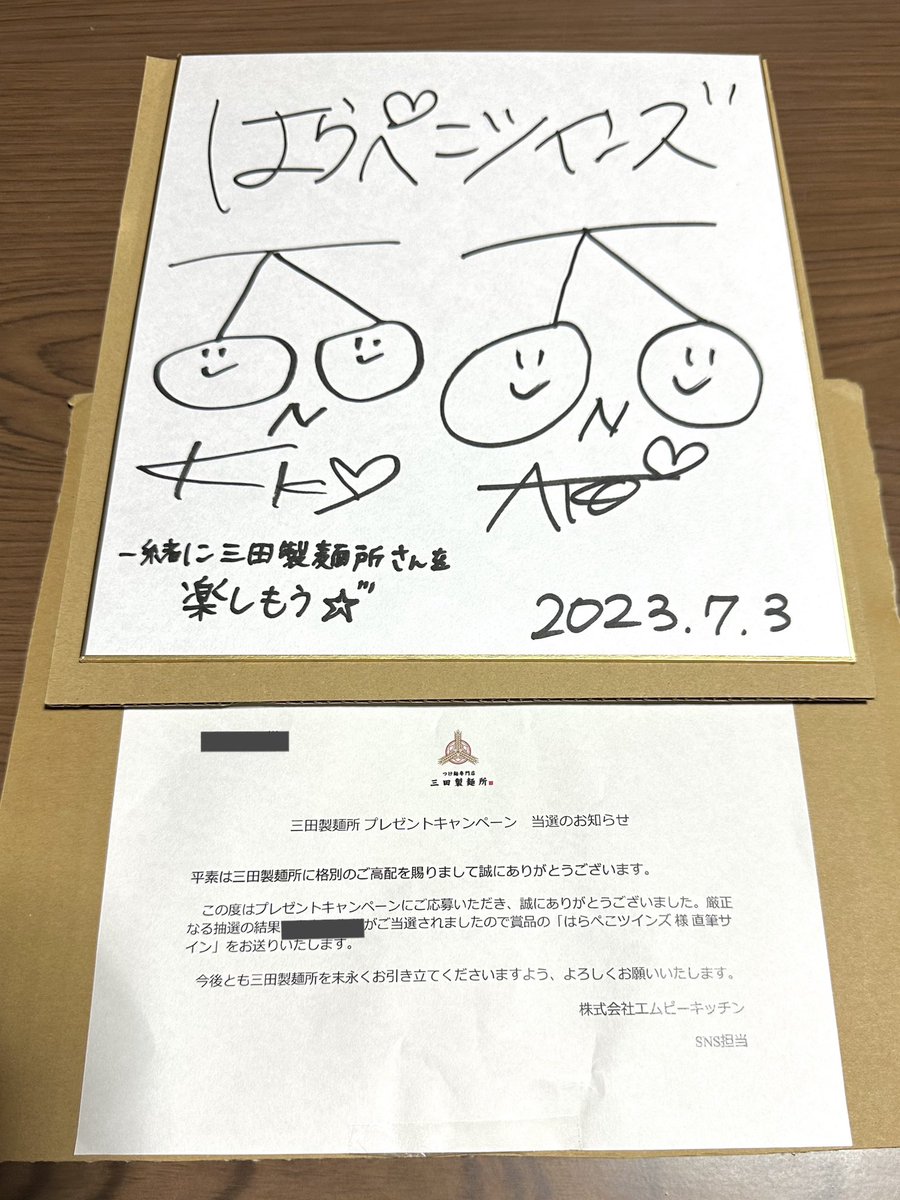 はらぺこツインズ
N
N
AKO
一緒に三田製麺所さんを
楽しもう☆
2023.7.3
つけ麺専門店
三田製麺所
三田製麺所 プレゼントキャンペーン　当選のお知らせ
平素は三田製麺所に格別のご高配を賜りまして誠にありがとうございます。
この度はプレゼントキャンペーンにご応募いただき、誠にありがとうございました。厳正
なる抽選の結果 がご当選されましたので賞品の「はらぺこツインズ 様 直筆サ
イン」をお送りいたします。
今後とも三田製麺所を末永くお引き立てくださいますよう、よろしくお願いいたします。
株式会社エムピーキッチン
SNS担当